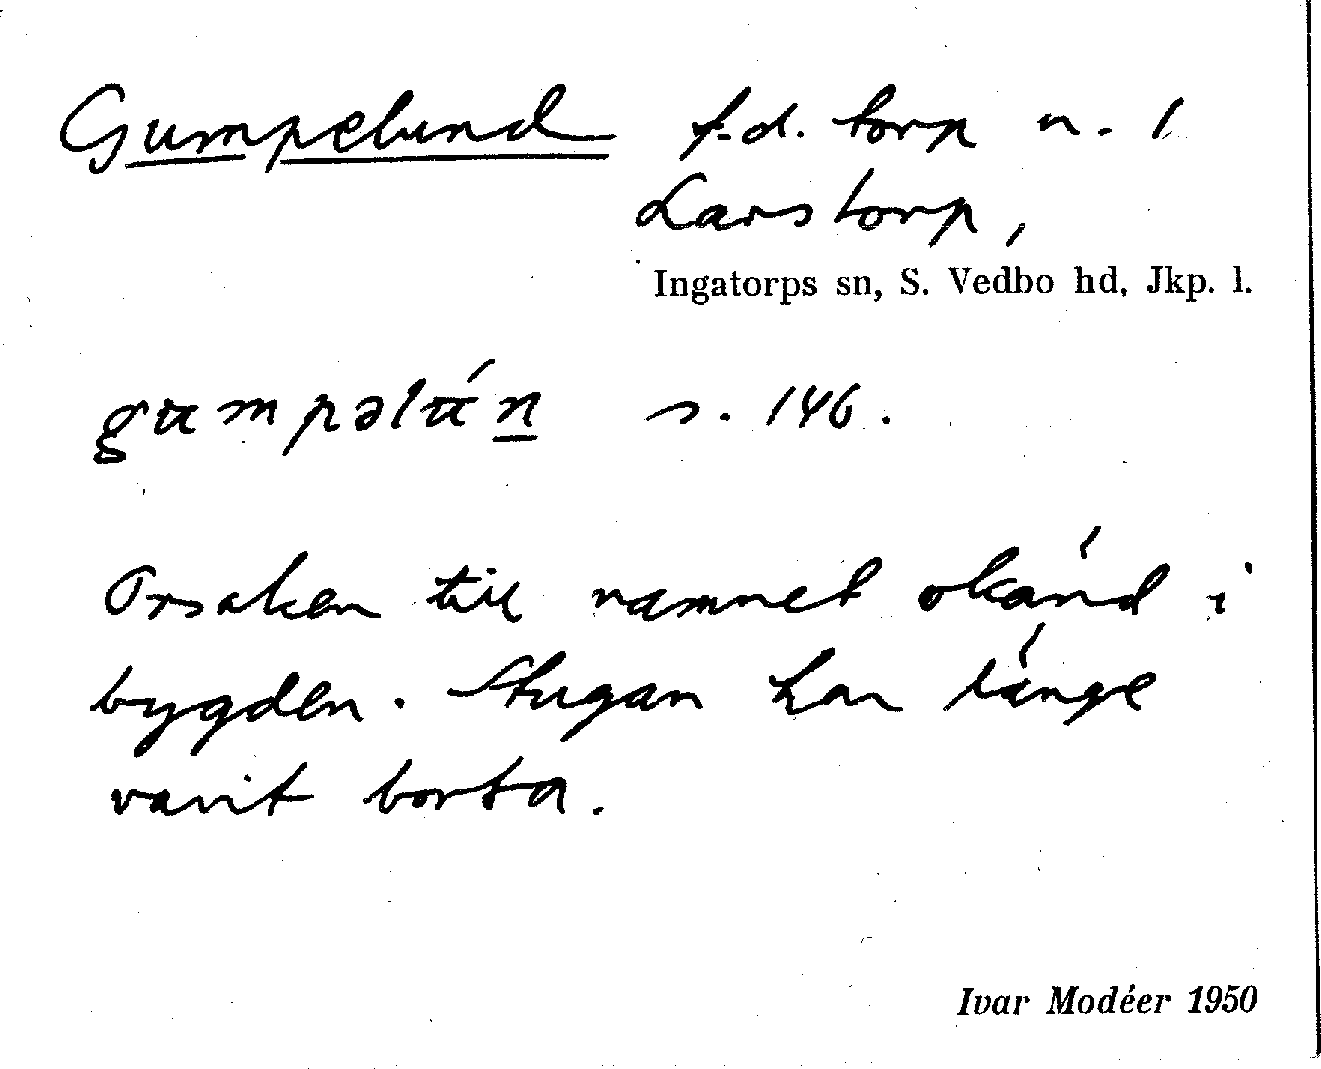 Gumpelund f.d. torp u. 1
Larstorp,
Ingatorps sn, S. Vedbo hd, Jkp. l.
gumpəlún s. 146.
Orsaken till namnet okänd i
bygden. Stugan har länge
varit borta.
Ivar Modéer 1950